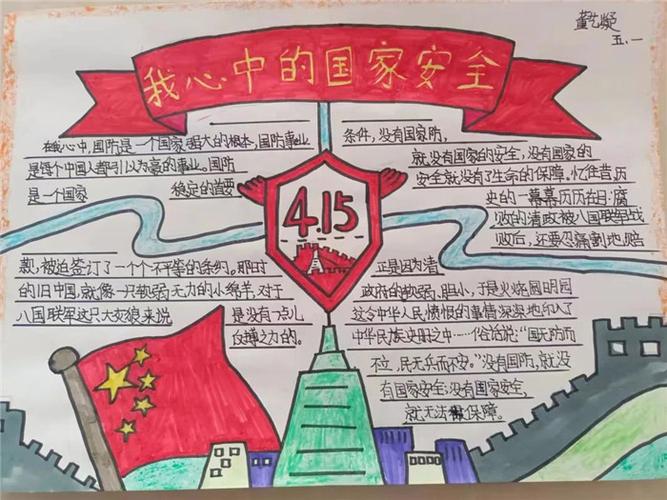 董艺凝
五、一
我心中的国家安全
在我心中,国防是一个国家强大的根本,国防事业
是每个中国人都引以为豪的事业。国防
是一个国家 稳定的首要
条件,没有国家防,
就没有国家的安全,没有国家的
安全就没有了生命的保障。忆往昔历
史的一幕幕历历在目:腐
败的清政被八国联军战
败后,还要忍痛割地、赔
4.15
款,被迫签订了一个个不平等的条约。那时
的旧中国,就像一只软弱无力的小绵羊,对于
八国联军这只大灰狼来说
是没有一点儿
反搏之力的。
正是因为清
政府的软弱、胆小,于是火烧圆明园
这令中华人民愤恨的事情深深地印入了
中华民族史册之中……俗话说:“国无防而
不立,民无兵而不安。”没有国防,就没
有国家安全;没有国家安全,
就无法保障。